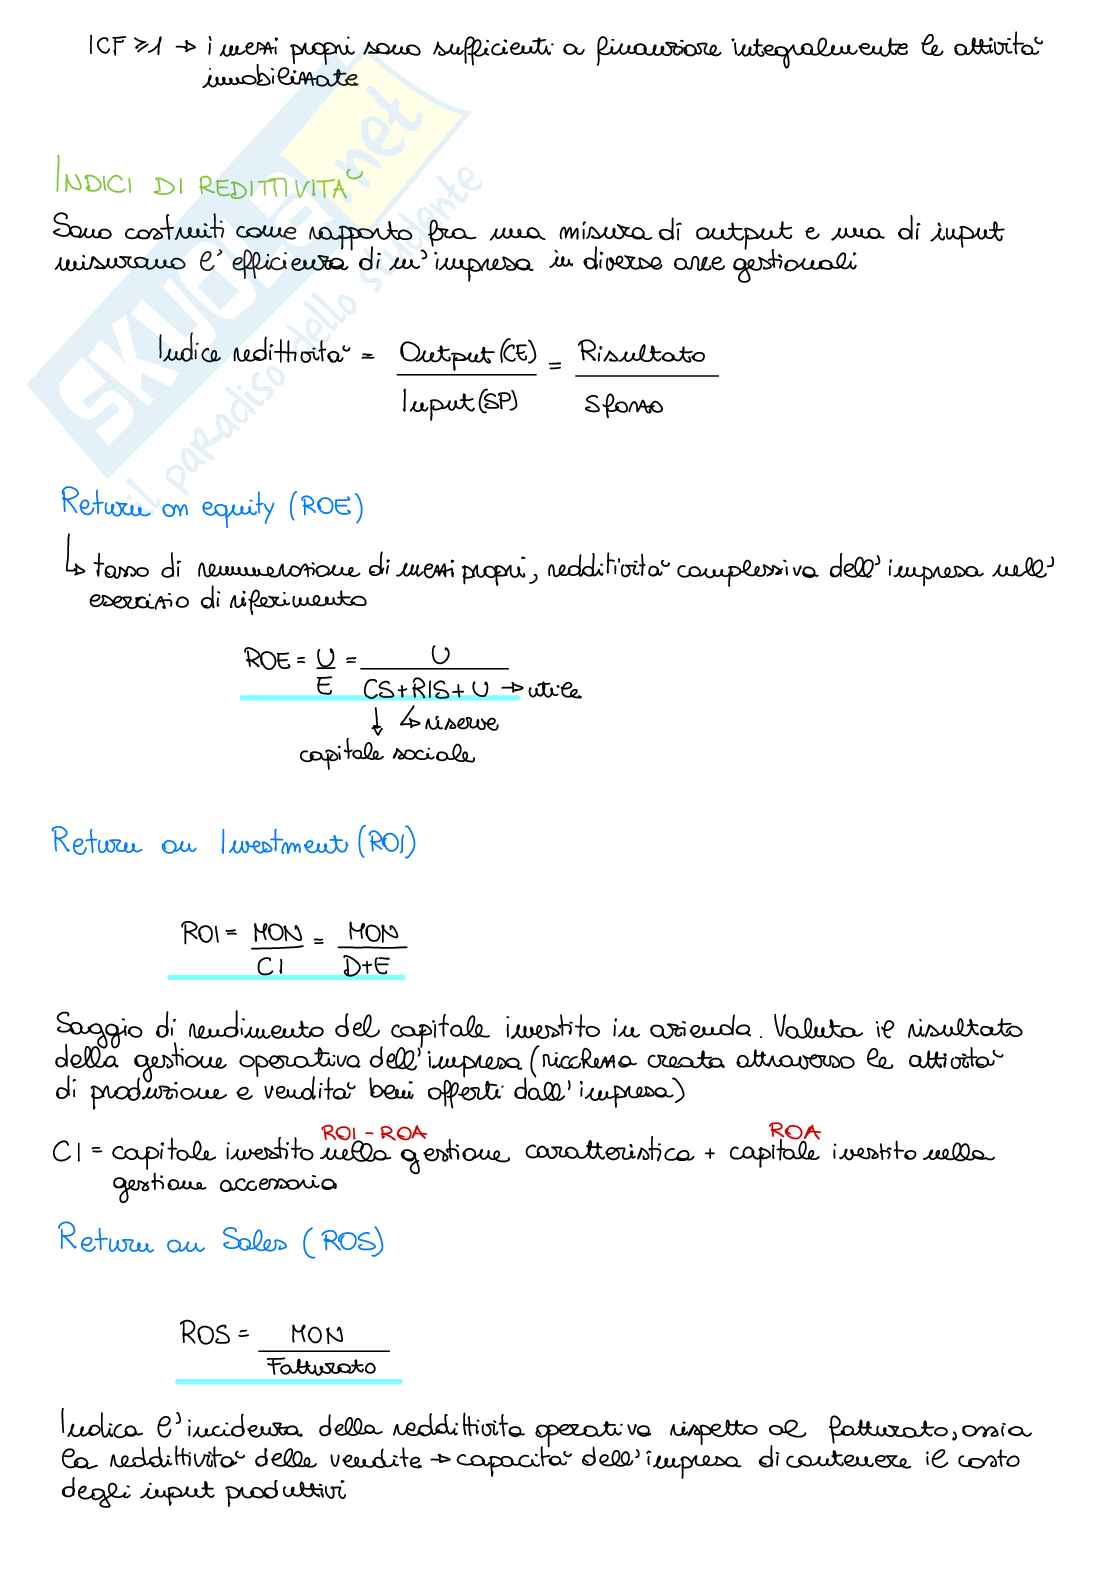 ICF ≥ 1 → i mezzi propri sono sufficienti a finanziare integralmente le attività
immobilizzate
INDICI DI REDITTIVITA'
Sono costruiti come rapporto fra una misura di output e una di input
misurano l'efficienza di un'impresa in diverse aree gestionali
Indice redittività = Output (CE) = Risultato
Input (SP) Sforzo
Return on equity (ROE)
↳ tasso di remunerazione di mezzi propri, redditività complessiva dell'impresa nell'
esercizio di riferimento
ROE = U = U
E CS + RIS + U → utile
↓ ↳ riserve
capitale sociale
Return on Investment (ROI)
ROI = MON = MON
CI D+E
Saggio di rendimento del capitale investito in azienda. Valuta il risultato
della gestione operativa dell'impresa (ricchezza creata attraverso le attività
di produzione e vendità beni offerti dall'impresa)
ROI - ROA ROA
CI = capitale investito nella gestione caratteristica + capitale investito nella
gestione accessoria
Return on Sales (ROS)
ROS = MON
Fatturato
Indica l'incidenza della reddittività operativa rispetto al fatturato, ossia
la reddittività delle vendite → capacità dell'impresa di contenere il costo
degli input produttivi
SKUOLA.net
il paradiso dello studente